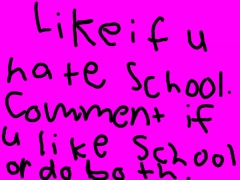 Like if u
hate School.
Comment if
u like School
or do both.